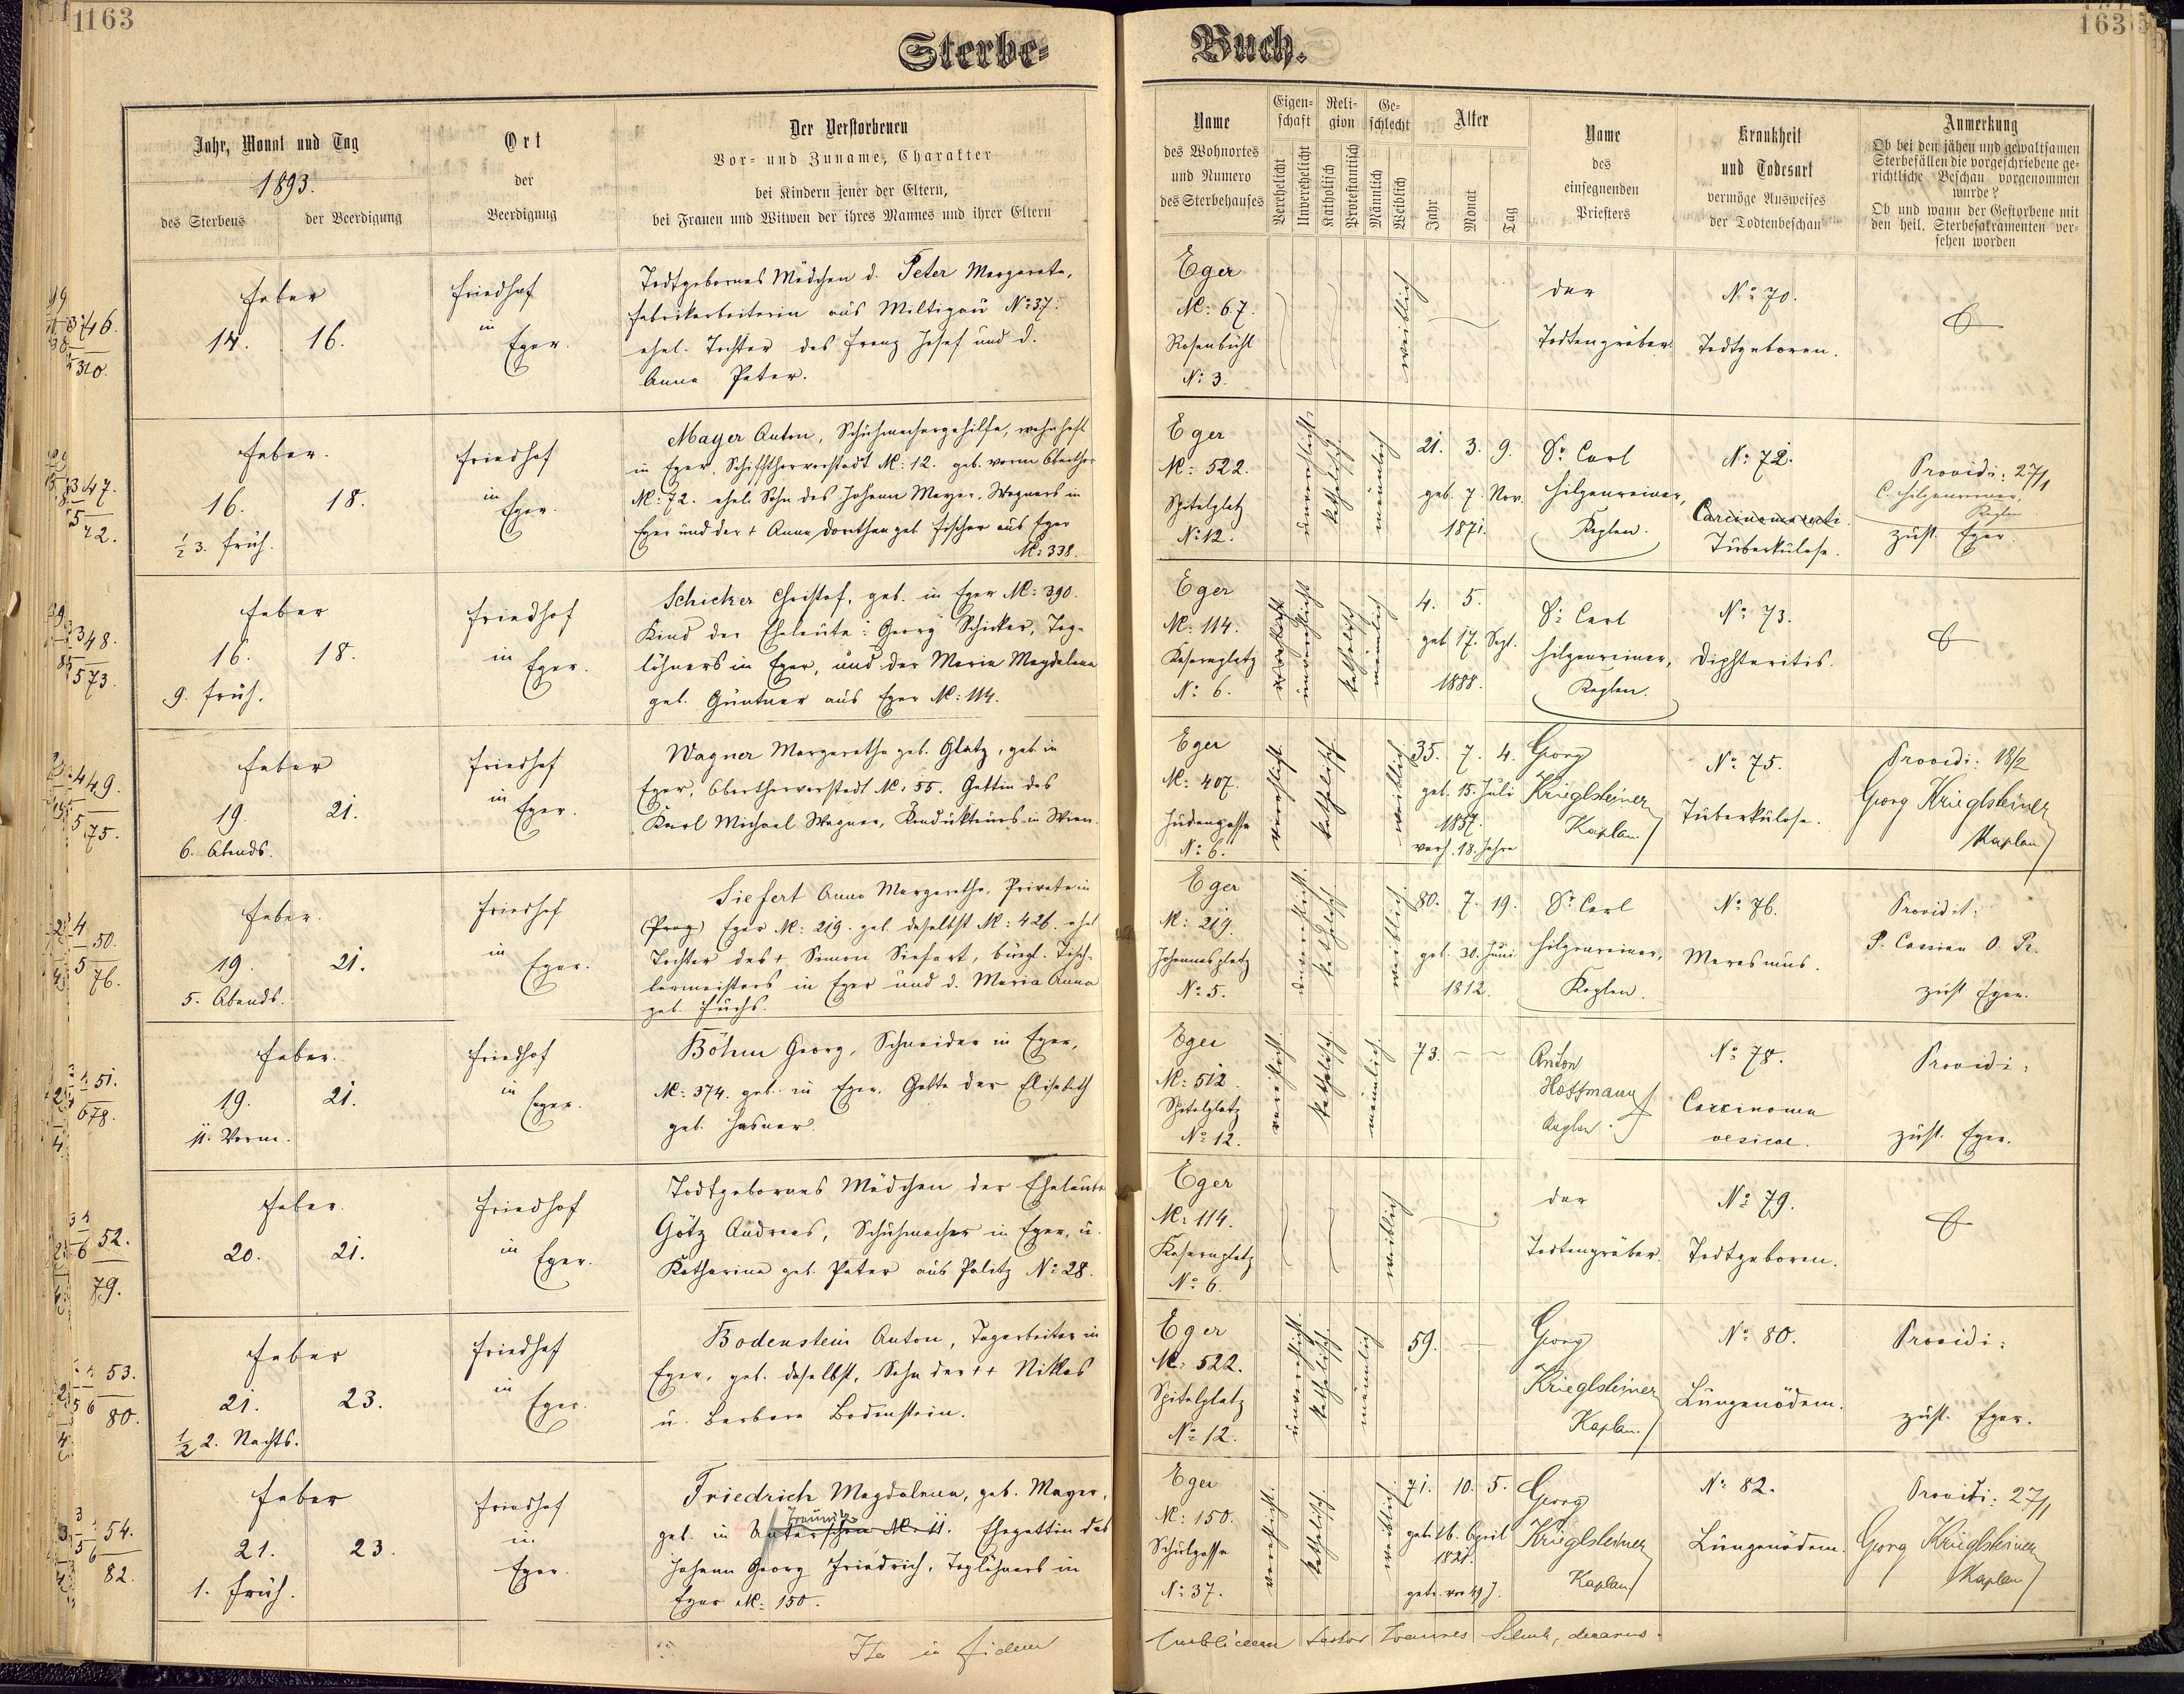 1163
Sterbe-
Jahr, Monat und Tag
1893.
des Sterbens
der Beerdigung
Ort
der
Beerdigung
Der Verstorbenen
Vor- und Zuname, Charakter
bei Kindern jener der Eltern,
bei Frauen und Witwen der ihres Mannes und ihrer Eltern
46.
Feber
14. 16.
Friedhof
in
Eger.
Todtgebornes Mädchen d. Peter Margareta,
Fabrikarbeiterin aus Miltigau No: 37.
ehel. Tochter des Franz Josef und d.
Anna Peter.
47.
72.
Feber.
16. 18.
½ 3. früh.
Friedhof
in
Eger.
Mayer Anton, Schuhmachergehilfe, wohnhaft
in Eger, Schifftthorvorstadt No: 12. geb. vorm Oberthor
No: 72. ehel. Sohn des Johann Mayer, Wagners in
Eger und der + Anna Dorothea geb. Fischer aus Eger
No: 338.
48.
73.
Feber
16. 18.
9. früh.
Friedhof
in Eger.
Schicker Christof, geb. in Eger No: 390.
Kind der Eheleute: Georg Schicker, Tag-
löhners in Eger, und der Maria Magdalena
geb. Güntner aus Eger No: 114.
49.
75.
Feber
19. 21.
6. Abends.
Friedhof
in
Eger.
Wagner Margaretha geb. Glatz, geb. in
Eger, Oberthorvorstadt No: 55. Gattin des
Karl Michael Wagner, Kondukteurs in Wien.
50.
76.
Feber.
19. 21.
5. Abends.
Friedhof
in
Eger.
Siefert Anna Margaretha, Private in
(Prag) Eger No: 219. geb. daselbst No: 426. ehel
Tochter des + Simon Siefert, bürgl. Tisch-
lermeisters in Eger und d. Maria Anna
geb. Fuchs.
51.
78.
Feber.
19. 21.
11. Vorm.
Friedhof
in
Eger.
Böhm Georg, Schneider in Eger,
No: 374. geb. in Eger. Gatte der Elisabeth
geb. Hasner.
52.
79.
Feber.
20. 21.
Friedhof
in
Eger.
Todtgebornes Mädchen der Eheleute
Götz Andreas, Schuhmacher in Eger, u.
Katharina geb. Peter aus Palitz No: 28.
53.
80.
Feber
21. 23.
½ 2. Nachts.
Friedhof
in
Eger.
Bodenstein Anton, Tagarbeiter in
Eger, geb. daselbst, Sohn der ++ Niklas
u. Barbara Bodenstein.
54.
82.
Feber
21. 23.
1. früh.
Friedhof
in
Eger.
Friedrich Magdalena, geb. Mayer,
geb. in Unterschön No: 11. Ehegattin des
Johann Georg Friedrich, Taglöhners in
Eger No: 150.
Ita in fidem
Buch.
163
Name
des Wohnortes
und Numero
des Sterbehauses
Eigen-
schaft
Verehelicht
Unverehelicht
Reli-
gion
Katholisch
Protestantisch
Ge-
schlecht
Männlich
Weiblich
Alter
Jahr
Monat
Tag
Name
des
einsegnenden
Priesters
Krankheit
und Todesart
vermöge Ausweises
der Todtenbeschau
Anmerkung
Ob bei den jähen und gewaltsamen
Sterbefällen die vorgeschriebene ge-
richtliche Beschau vorgenommen
wurde?
Ob und wann der Gestorbene mit
den heil. Sterbesakramenten ver-
sehen worden
Eger
No: 67.
Rosenbühl
No: 3.
weiblich
der
Todtengräber.
No: 70.
Todtgeboren.
Eger
No: 522.
Spitalplatz
No: 12.
unverehelicht
katholisch
männlich
21. 3. 9.
geb. 7. Nov.
1871.
Dr. Carl
Hilgenreiner,
Kaplan.
No: 72.
Carcinoma recti.
Tuberkulose.
Providi: 27/1
C. Hilgenreiner,
Kaplan
zust. Eger.
Eger
No: 114.
Kasernplatz
No: 6.
verehelicht
unverehelicht
katholisch
männlich
4. 5.
geb. 17. Sept.
1888.
Dr. Carl
Hilgenreiner,
Kaplan.
No: 73.
Diphteritis.
Eger
No: 407.
Judengasse
No: 6.
verehelicht
katholisch
weiblich
35. 7. 4.
geb. 15. Juli
1857.
verh. 18. Jahre
Georg
Krieglsteiner
Kaplan.
No: 75.
Tuberkulose.
Providi: 18/2
Georg Krieglsteiner
Kaplan
Eger
No: 219.
Johannesplatz
No: 5.
unverehelicht
katholisch
weiblich
80. 7. 19.
geb. 30. Juni
1812.
Dr. Carl
Hilgenreiner,
Kaplan.
No: 76.
Marasmus.
Providit:
P. Cassian O. Pr.
zust. Eger.
Eger
No: 512.
Spitalplatz
No: 12.
verehelicht.
katholisch.
männlich.
73. – –
Anton
Hoffmann
Kaplan.
No: 78.
Carcinoma
vesicae.
Providi:
zust. Eger.
Eger
No: 114.
Kasernplatz
No: 6.
weiblich
der
Todtengräber.
No: 79.
Todtgeboren.
Eger
No: 522.
Spitalplatz
No: 12.
unverehelicht.
katholisch.
männlich
59. –
Georg
Krieglsteiner
Kaplan.
No: 80.
Lungenödem.
Providi:
zust. Eger.
Eger
No: 150.
Schulgasse
No: 37.
verehelicht.
katholisch.
weiblich
71. 10. 5.
geb. 16. April
1821.
getr. vor 49 J.
Georg
Krieglsteiner
Kaplan
No: 82.
Lungenödem.
Providi: 27/1
Georg Krieglsteiner
Kaplan